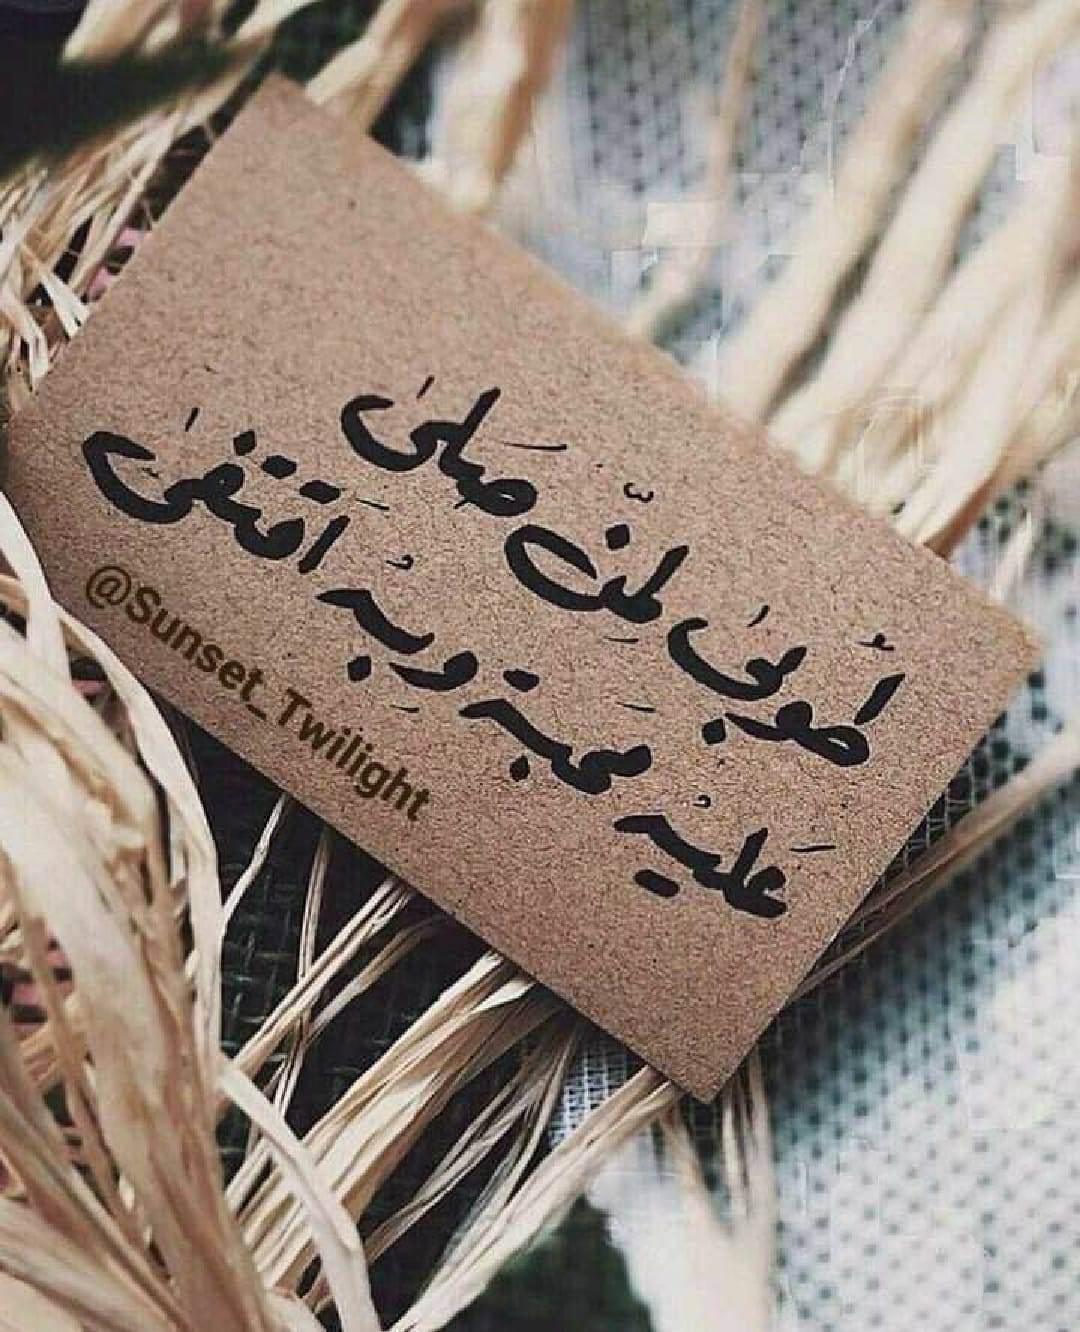 طُوبَى لِمَنْ صَلَّى
عَلَيْهِ مَحَبَّة وَبِهِ اقتَفَى
@Sunset_Twilight